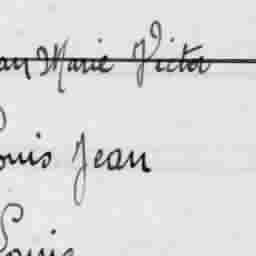 an Marie Victor
ouis Jean
Louis